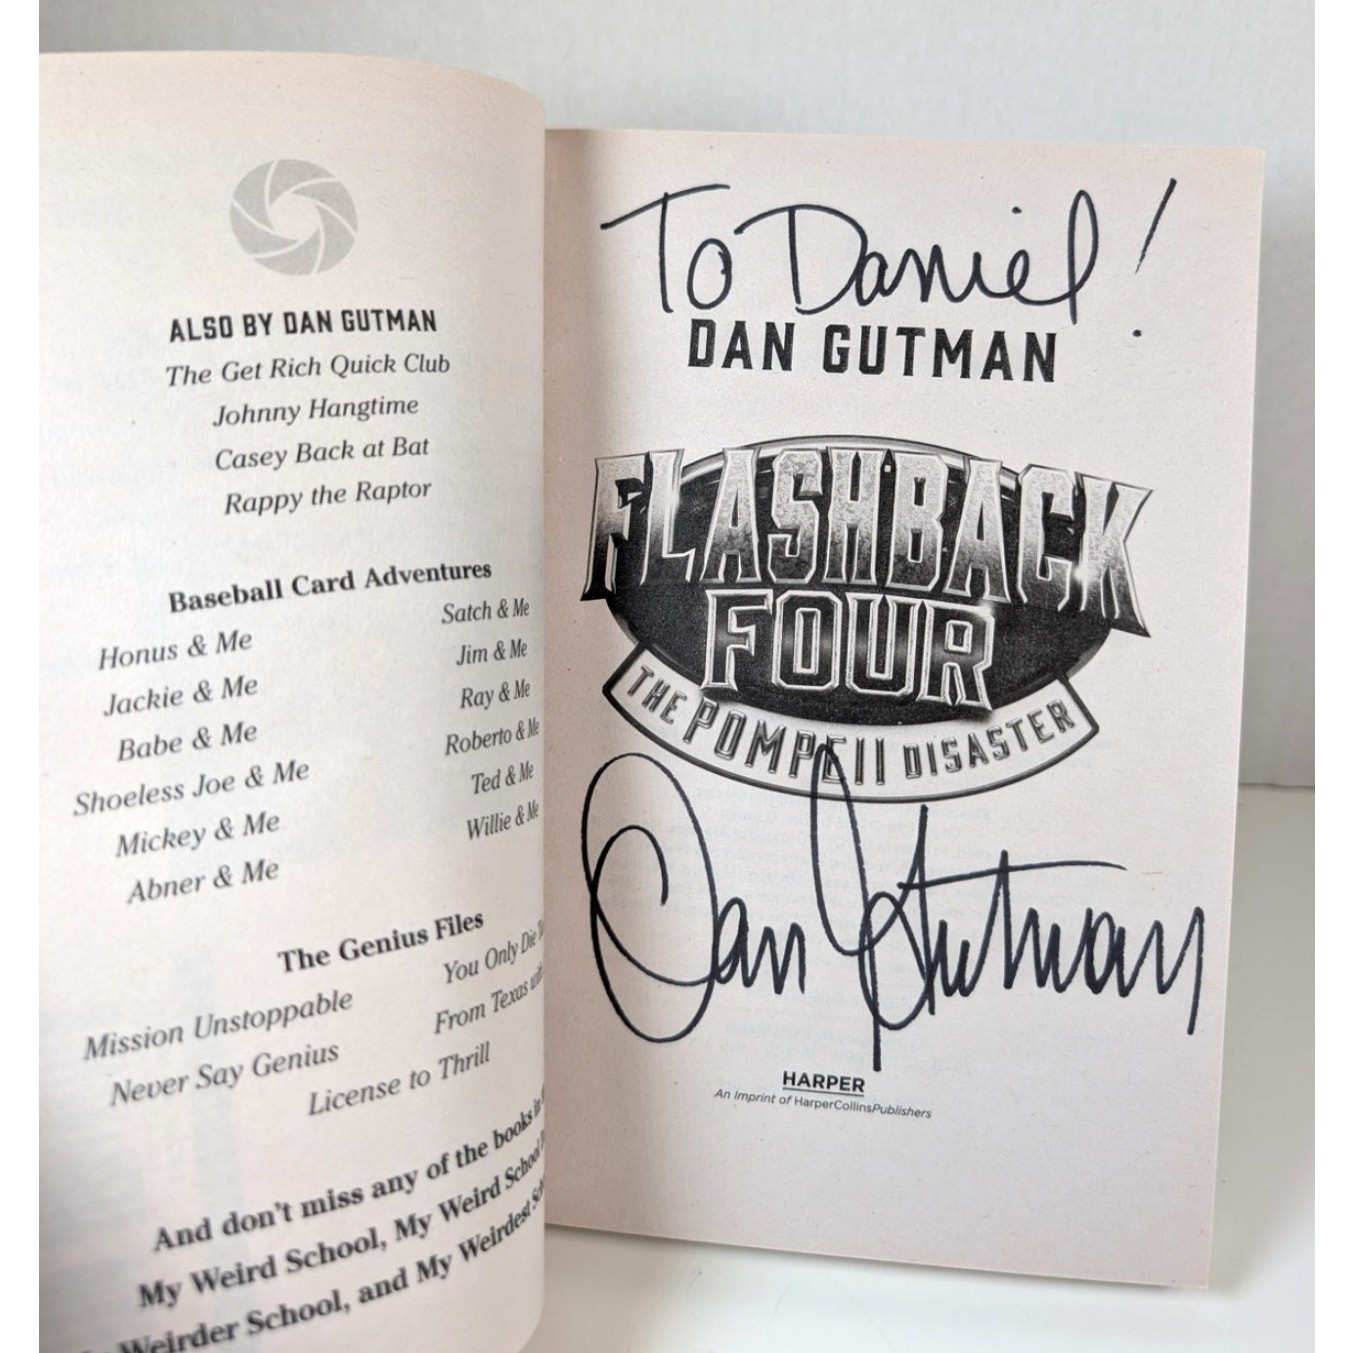 ALSO BY DAN GUTMAN
The Get Rich Quick Club
Johnny Hangtime
Casey Back at Bat
Rappy the Raptor
Baseball Card Adventures
Honus & Me
Jackie & Me
Babe & Me
Shoeless Joe & Me
Mickey & Me
Abner & Me
Satch & Me
Jim & Me
Ray & Me
Roberto & Me
Ted & Me
Willie & Me
The Genius Files
Mission Unstoppable
Never Say Genius
You Only Die
From Texas
License to Thrill
And don't miss any of the books in
My Weird School, My Weird School
Weirder School, and My Weirdest
To Daniel!
DAN GUTMAN
FLASHBACK
FOUR
THE POMPEII DISASTER
Dan Gutman
HARPER
An Imprint of HarperCollinsPublishers